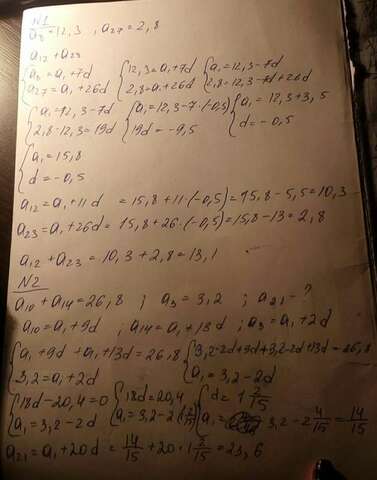 N1
a₈=12,3 , a₂₇=2,8
a₁₂ + a₂₃
{a₈=a₁+7d {12,3=a₁+7d {a₁=12,3-7d
a₂₇=a₁+26d 2,8=a₁+26d 2,8=12,3-7d+26d
{a₁=12,3-7d {a₁=12,3-7·(-0,5) {a₁=12,3+3,5
2,8-12,3=19d 19d=-9,5 d=-0,5
{a₁=15,8
d=-0,5
a₁₂=a₁+11d = 15,8+11·(-0,5)=15,8-5,5=10,3
a₂₃=a₁+26d=15,8+26·(-0,5)=15,8-13=2,8
a₁₂+a₂₃=10,3+2,8=13,1
N2
a₁₀+a₁₄=26,8 ; a₃=3,2 ; a₂₁-?
a₁₀=a₁+9d ; a₁₄=a₁+13d ; a₃=a₁+2d
{a₁+9d+a₁+13d=26,8 {3,2-2d+9d+3,2-2d+13d=26,8
3,2=a₁+2d a₁=3,2-2d
{18d-20,4=0 {18d=20,4 {d=1 2/15
a₁=3,2-2d a₁=3,2-2(1 2/15) a₁= 3,2-2 4/15=14/15
a₂₁=a₁+20d=14/15+20·1 2/15=23,6